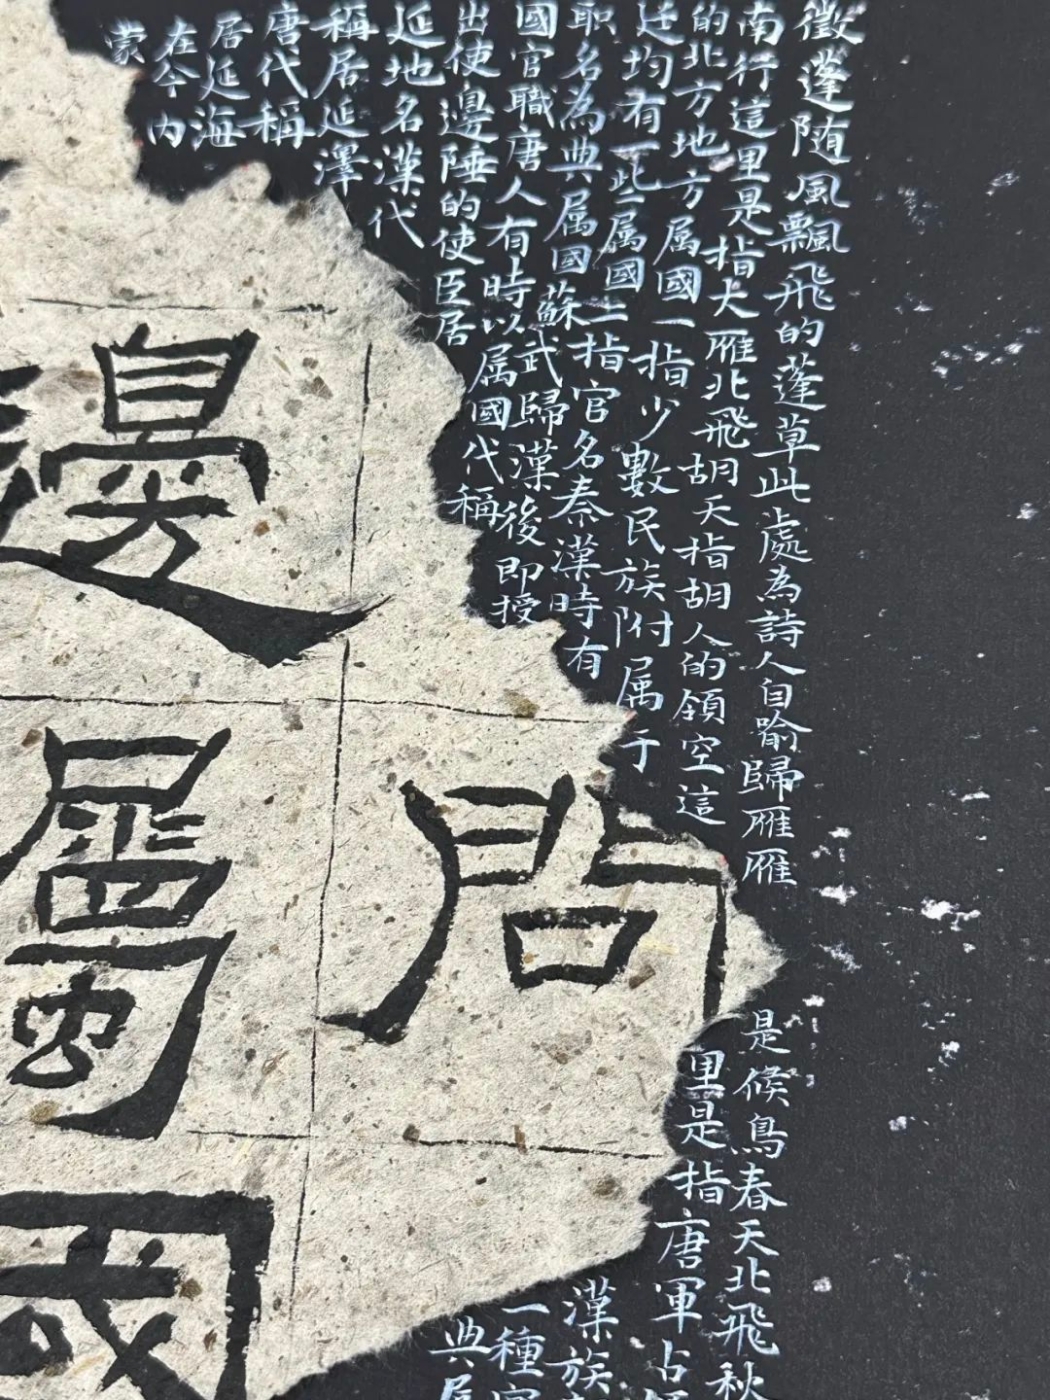 徵蓬随風飄飛的蓬草此處為詩人自喻歸雁雁
是候鳥春天北飛秋
南行這里是指大雁北飛胡天指胡人的領空這
里是指唐軍占
的北方地方属國一指少數民族附属于
漢族
廷均有一些属國二指官名秦漢時有
一種官
职名為典属國蘇武歸漢後即授
典属
國官職唐人有時以属國代稱
出使邊陲的使臣居
延地名漢代
稱居延澤
唐代稱
居延海
在今内
蒙
問
邊屬國